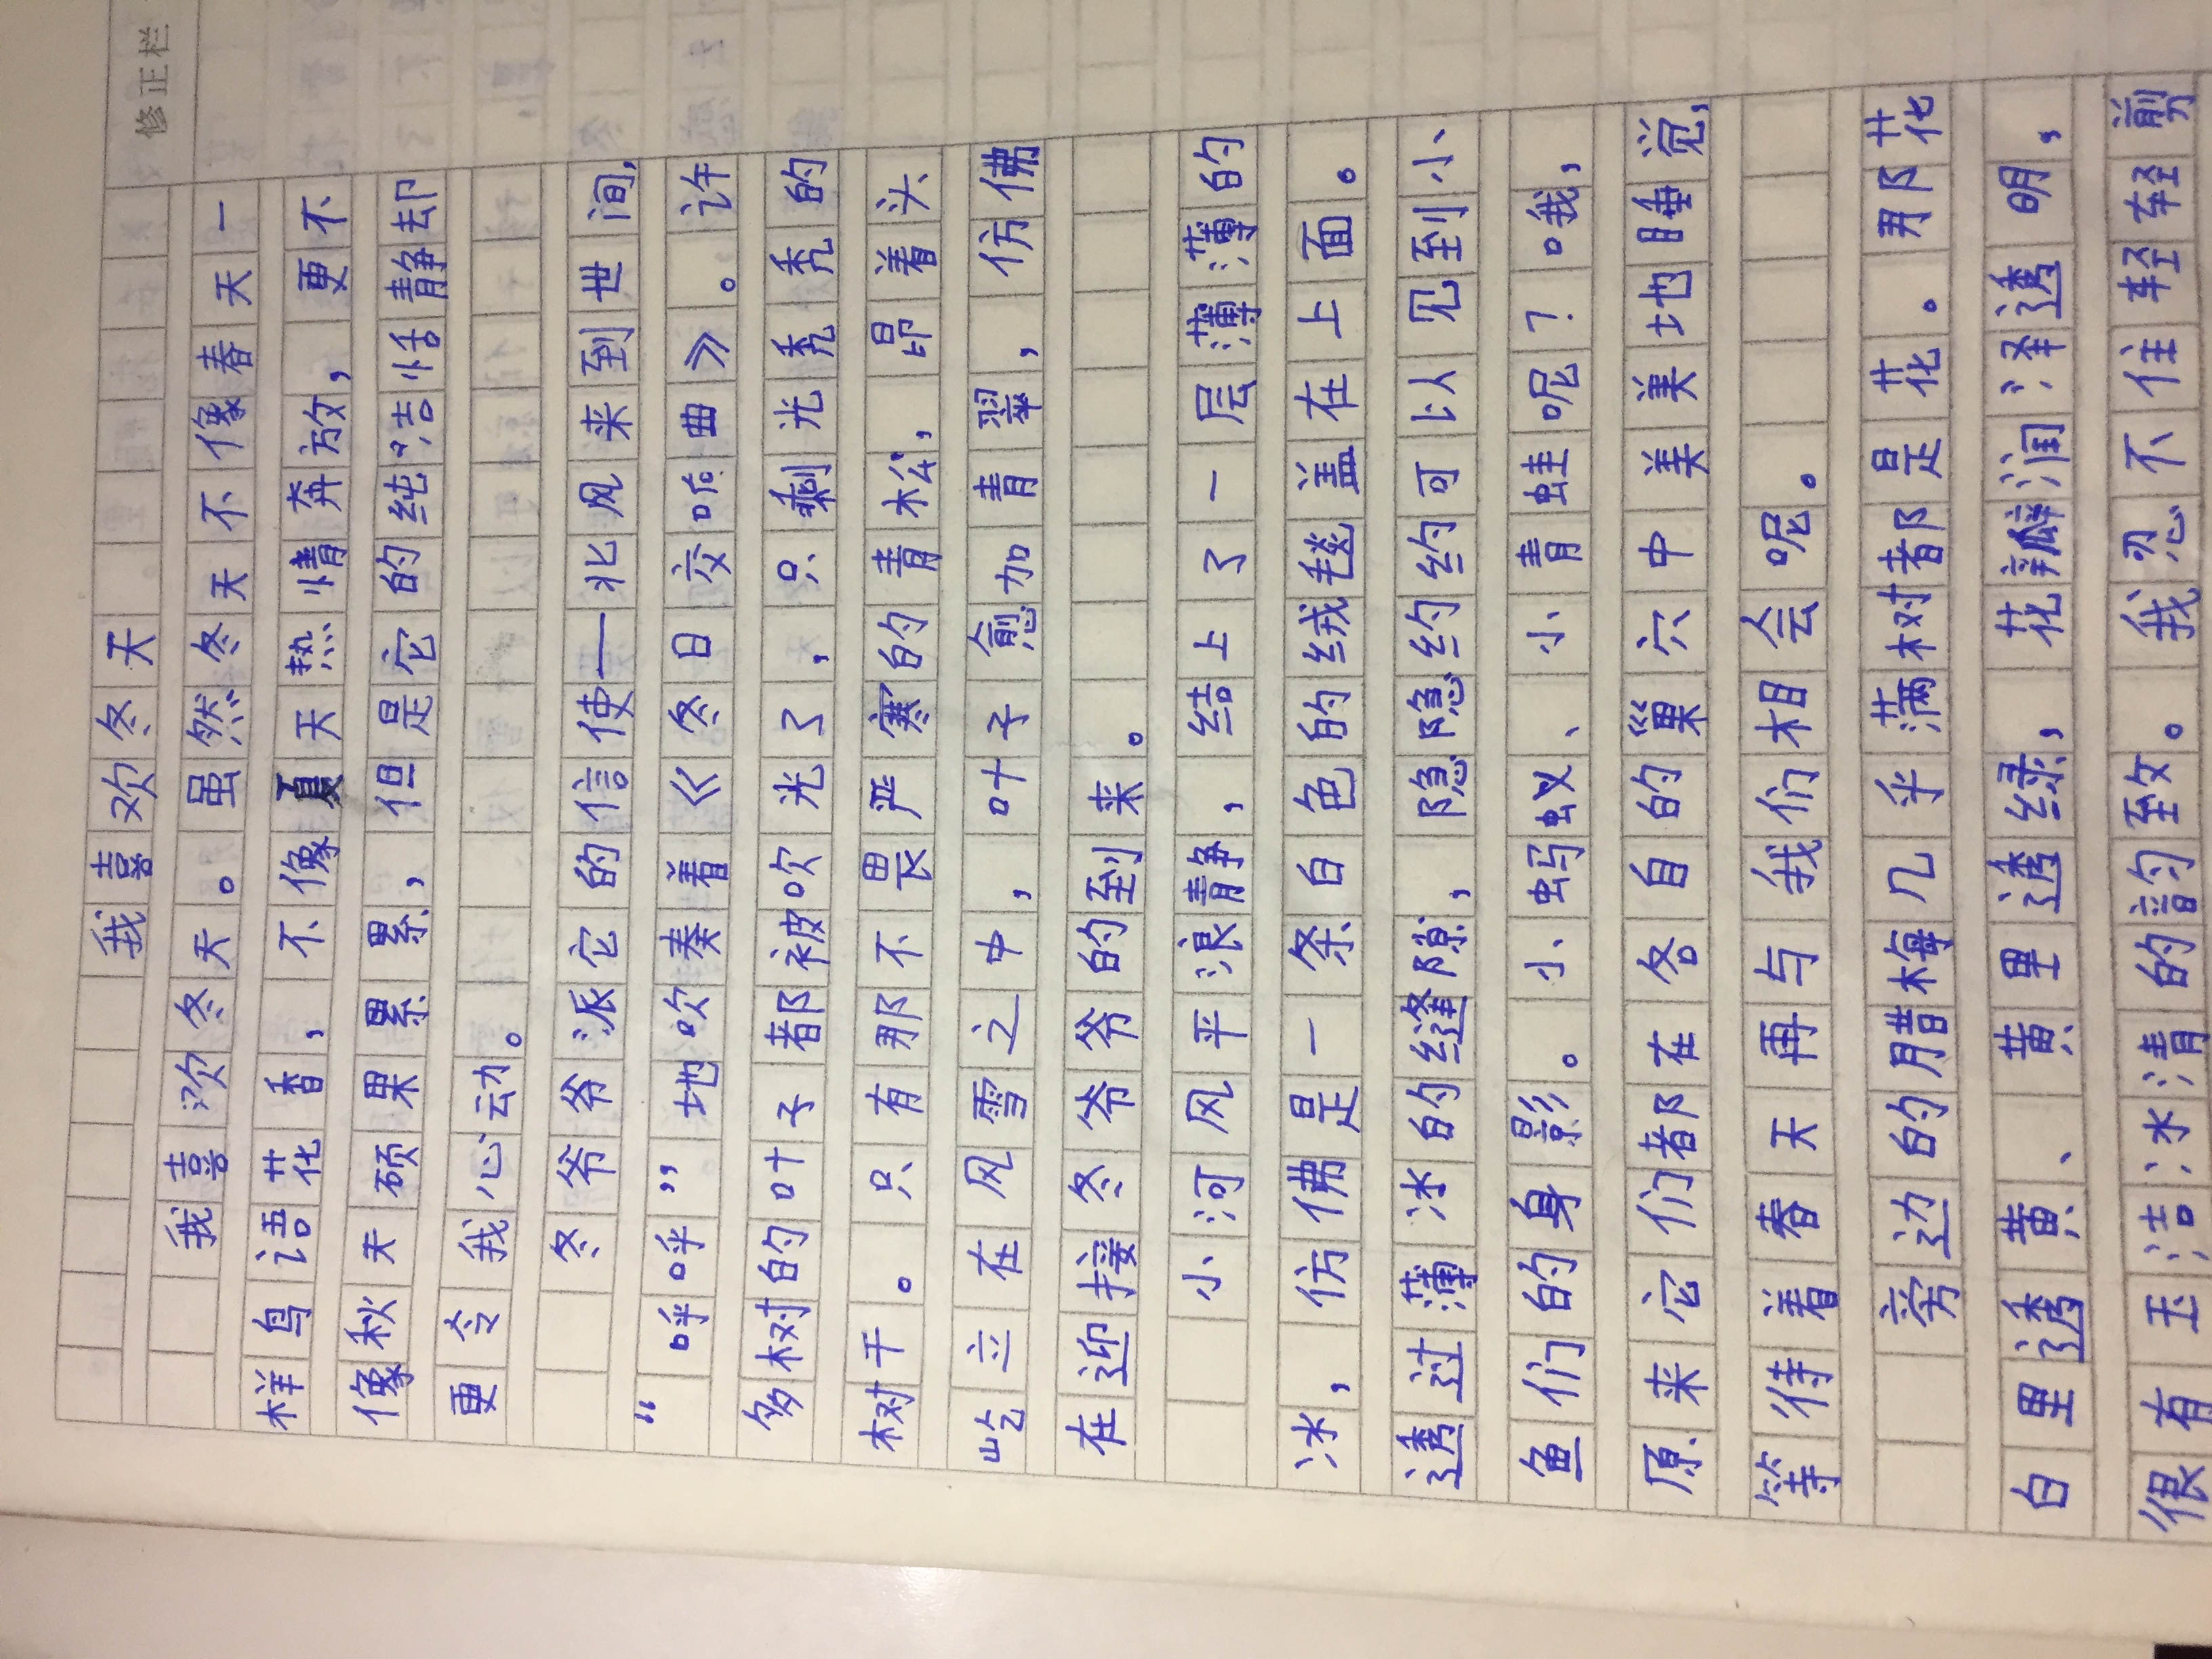 修正栏
我喜欢冬天
我喜欢冬天。虽然冬天不像春天一
样鸟语花香，不像夏天热情奔放，更不
像秋天硕果累累，但是它的纯洁恬静却
更令我心动。
冬爷爷派它的信使——北风来到世间，
“呼呼”地吹奏着《冬日交响曲》。许
多树的叶子都被吹光了，只剩光秃秃的
树干。只有那不畏严寒的青松，昂着头
屹立在风雪之中，叶子愈加青翠，仿佛
在迎接冬爷爷的到来。
小河风平浪静，结上了一层薄薄的
冰，仿佛是一条白色的绒毯盖在上面。
透过薄冰的缝隙，隐隐约约可以见到小
鱼们的身影。小蚂蚁、小青蛙呢？哦，
原来它们都在各自的巢穴中美美地睡觉，
等待着春天再与我们相会呢。
旁边的腊梅几乎满树都是花。那花
白里透黄、黄里透绿，花瓣润泽透明，
很有玉洁冰清的韵致。我忍不住轻轻剪